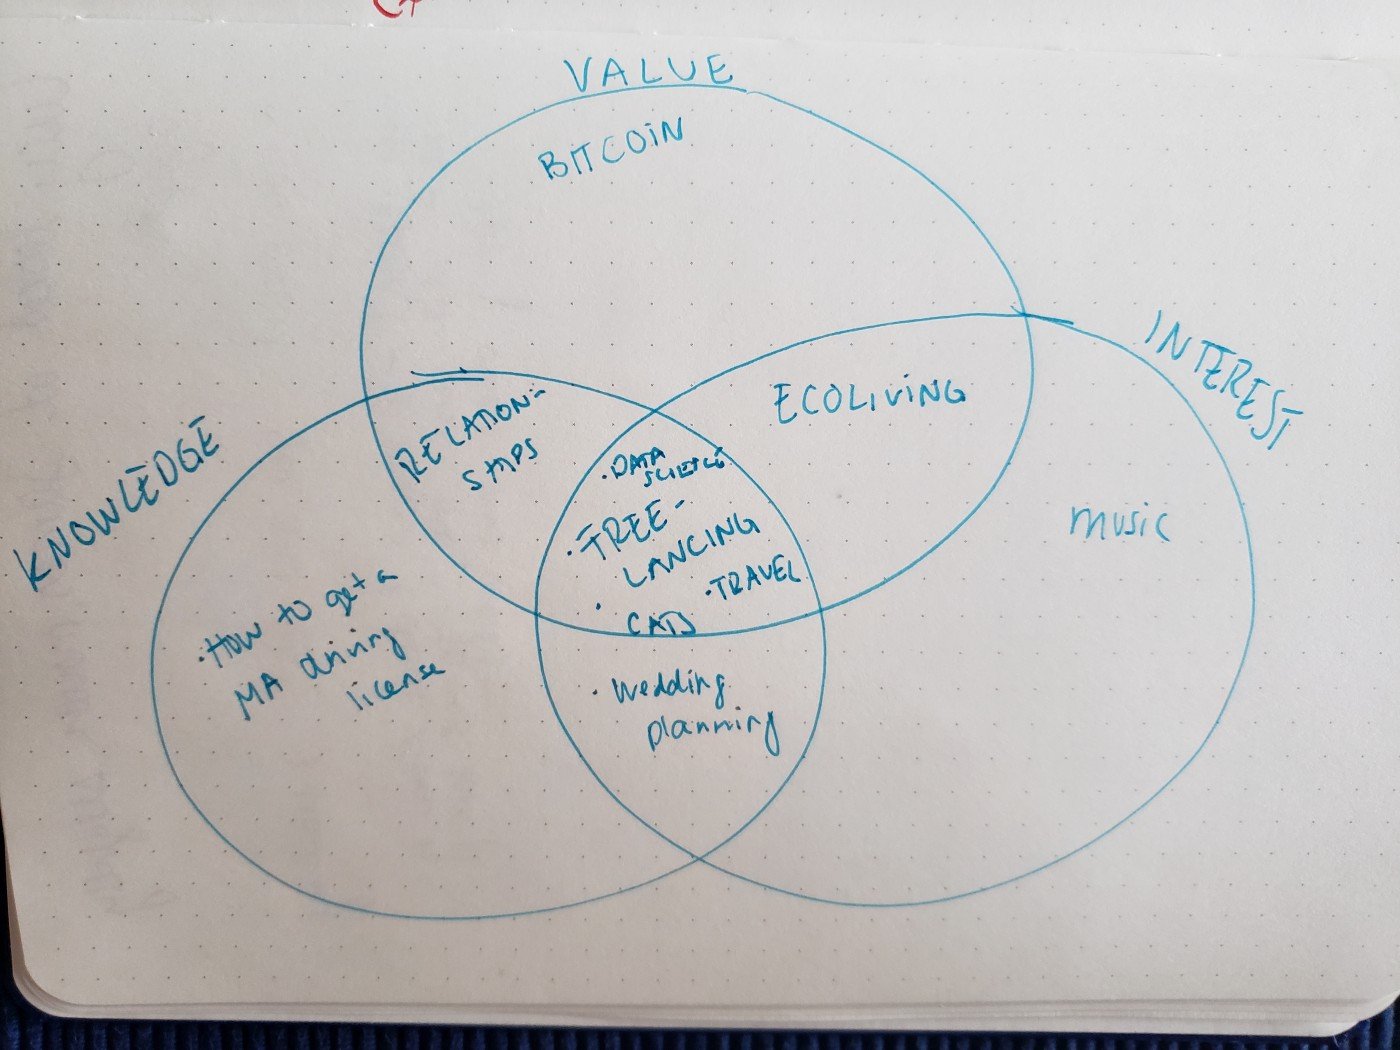 VALUE
BITCOIN
INTEREST
KNOWLEDGE
RELATION-
SHIPS
ECOLIVING
• DATA
SCIENCE
• FREE-
LANCING
• TRAVEL
• CATS
music
• How to get a
MA driving
license
• Wedding
planning